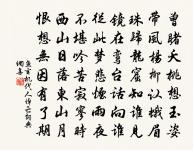 曾睹夭桃想玉姿
帶風楊柳認蛾眉
珠歸龍窟知誰見
鏡在鸞臺話向誰
從此夢悲煙雨夜
不堪吟苦寂寥時
西山日落東山月
恨想無因有了期
魚玄機代人悼亡詞典